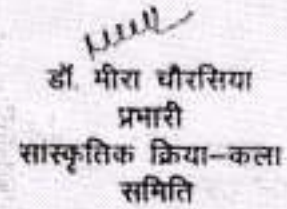 डॉ. मीरा चौरसिया
प्रभारी
सांस्कृतिक क्रिया–कला
समिति